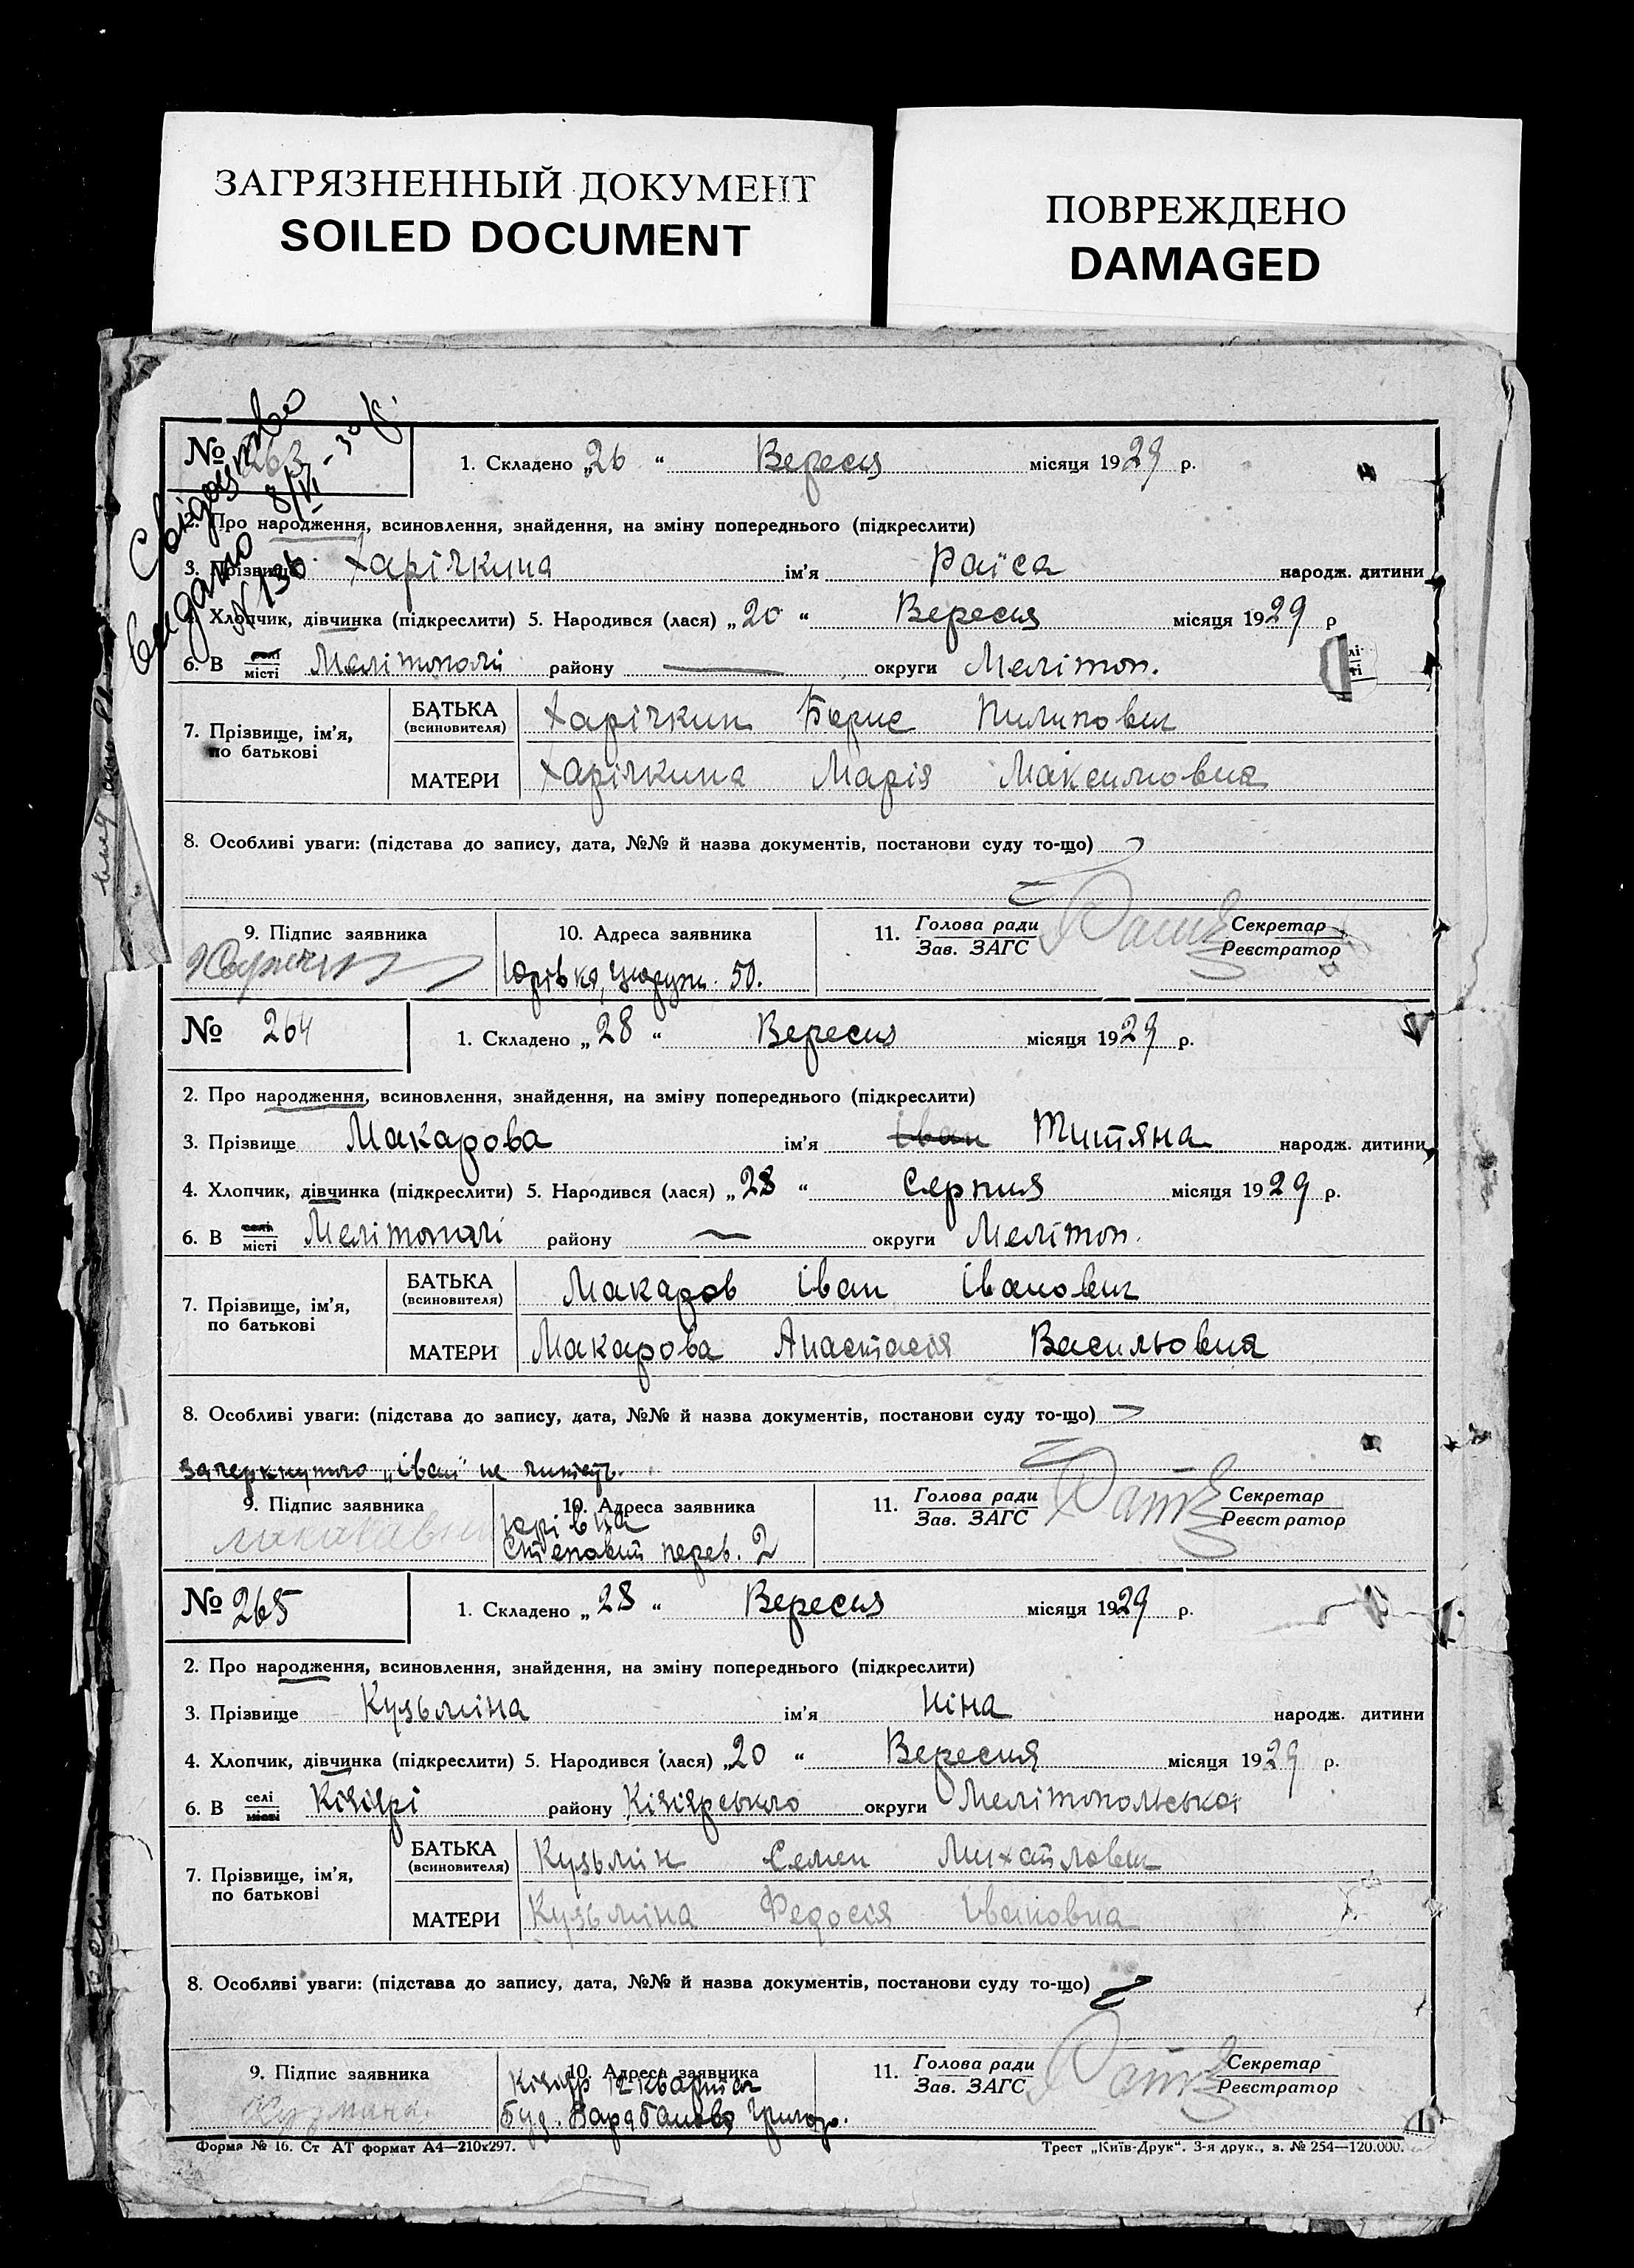 ЗАГРЯЗНЕННЫЙ ДОКУМЕНТ
SOILED DOCUMENT
ПОВРЕЖДЕНО
DAMAGED
Свідоцтво
видано 8/VI - 30 р.
N 136
№ 263
1. Складено „26 “ Вересня місяця 1929 р.
2. Про народження, всиновлення, знайдення, на зміну попереднього (підкреслити)
3. Прізвище Харічкина ім’я Раїса народж. дитини
4. Хлопчик, дівчинка (підкреслити) 5. Народився (лася) „20 “ Вересня місяця 1929 р
6. В селі місті Мелітополі району — округи Мелітоп.
7. Прізвище, ім’я, по батькові
БАТЬКА (всиновителя) Харічкин Борис Пилипович
МАТЕРИ Харічкина Марія Максимовна
8. Особливі уваги: (підстава до запису, дата, №№ й назва документів, постанови суду то-що)
9. Підпис заявника
10. Адреса заявника
Юрівка, 50.
11. Голова ради Зав. ЗАГС
Секретар Реєстратор
№ 264
1. Складено „28 “ Вересня місяця 1929 р.
2. Про народження, всиновлення, знайдення, на зміну попереднього (підкреслити)
3. Прізвище Макарова ім’я Іван Титяна народж. дитини
4. Хлопчик, дівчинка (підкреслити) 5. Народився (лася) „28 “ Серпня місяця 1929 р.
6. В селі місті Мелітополі району — округи Мелітоп.
7. Прізвище, ім’я, по батькові
БАТЬКА (всиновителя) Макаров Іван Іванович
МАТЕРИ Макарова Анастасія Васильовна
8. Особливі уваги: (підстава до запису, дата, №№ й назва документів, постанови суду то-що)
Зачеркнутого „Іван“ не читать.
9. Підпис заявника
10. Адреса заявника
Юрівка
перев. 2
11. Голова ради Зав. ЗАГС
Секретар Реєстратор
№ 265
1. Складено „28 “ Вересня місяця 1929 р.
2. Про народження, всиновлення, знайдення, на зміну попереднього (підкреслити)
3. Прізвище Кузьміна ім’я Ніна народж. дитини
4. Хлопчик, дівчинка (підкреслити) 5. Народився (лася) „20 “ Вересня місяця 1929 р.
6. В селі місті Кізіярі району Кізіярського округи Мелітопольської
7. Прізвище, ім’я, по батькові
БАТЬКА (всиновителя) Кузьмін Семен Михайлович
МАТЕРИ Кузьміна Федосія Івановна
8. Особливі уваги: (підстава до запису, дата, №№ й назва документів, постанови суду то-що)
9. Підпис заявника
10. Адреса заявника
Кізіяр 12 квартал
буд.
11. Голова ради Зав. ЗАГС
Секретар Реєстратор
Форма № 16. Ст АТ формат А4—210х297.
Трест „Київ-Друк“. 3-я друк., з. № 254—120.000.